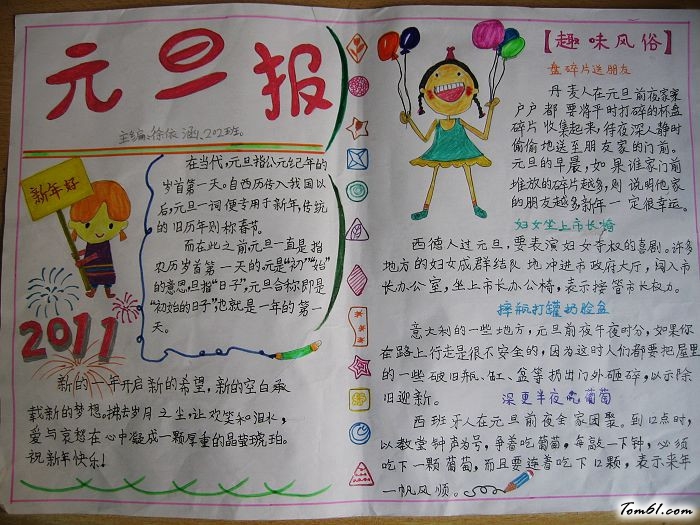 元旦报
主编:徐依涵.202班.
新年好
2011
在当代,元旦指公元纪年的
岁首第一天。自西历传入我国以
后,元旦一词便专用于新年,传统
的旧历年则称春节。
而在此之前元旦一直是指
农历岁首第一天的。元是“初”“始”
的意思,旦指“日子”,元旦合称即是
“初始的日子”,也就是一年的第一
天。
新的一年开启新的希望,新的空白承
载新的梦想。拂去岁月之尘,让欢笑和泪水,
爱与哀愁在心中凝成一颗厚重的晶莹琥珀。
祝新年快乐!
【趣味风俗】
盘碎片送朋友
丹麦人在元旦前夜家家
户户都要将平时打碎的杯盘
碎片收集起来,待夜深人静时
偷偷地送至朋友家的门前。
元旦的早晨,如果谁家门前
堆放的碎片越多,则说明他家
的朋友越多新年一定很幸运。
妇女坐上市长椅
西德人过元旦,要表演妇女夺权的喜剧。许多
地方的妇女成群结队地冲进市政府大厅,闯入市
长办公室,坐上市长办公椅,表示接管市长权力。
摔瓶打罐扔脸盆
意大利的一些地方,元旦前夜午夜时分,如果你
在路上行走是很不安全的,因为这时人们都要把屋里
的一些破旧瓶、缸、盆等扔出门外砸碎,以示除
旧迎新。
深更半夜吃葡萄
西班牙人在元旦前夜全家团聚。到12点时,
以教堂钟声为号,争着吃葡萄,每敲一下钟,必须
吃下一颗葡萄,而且要连着吃下12颗,表示来年
一帆风顺。
Tom61.com